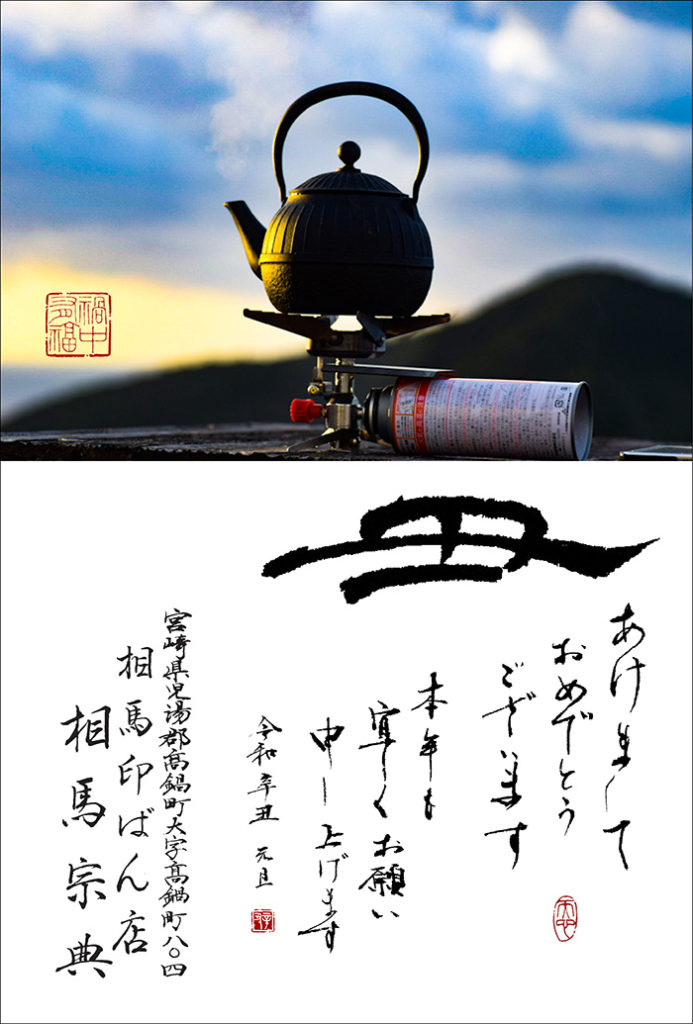 禍中
有福
丑
あけまして
おめでとう
ございます
本年も
宜しくお願い
申し上げます
令和辛丑 元旦
宮崎県児湯郡高鍋町大字高鍋町八〇四
相馬印ばん店
相馬宗典